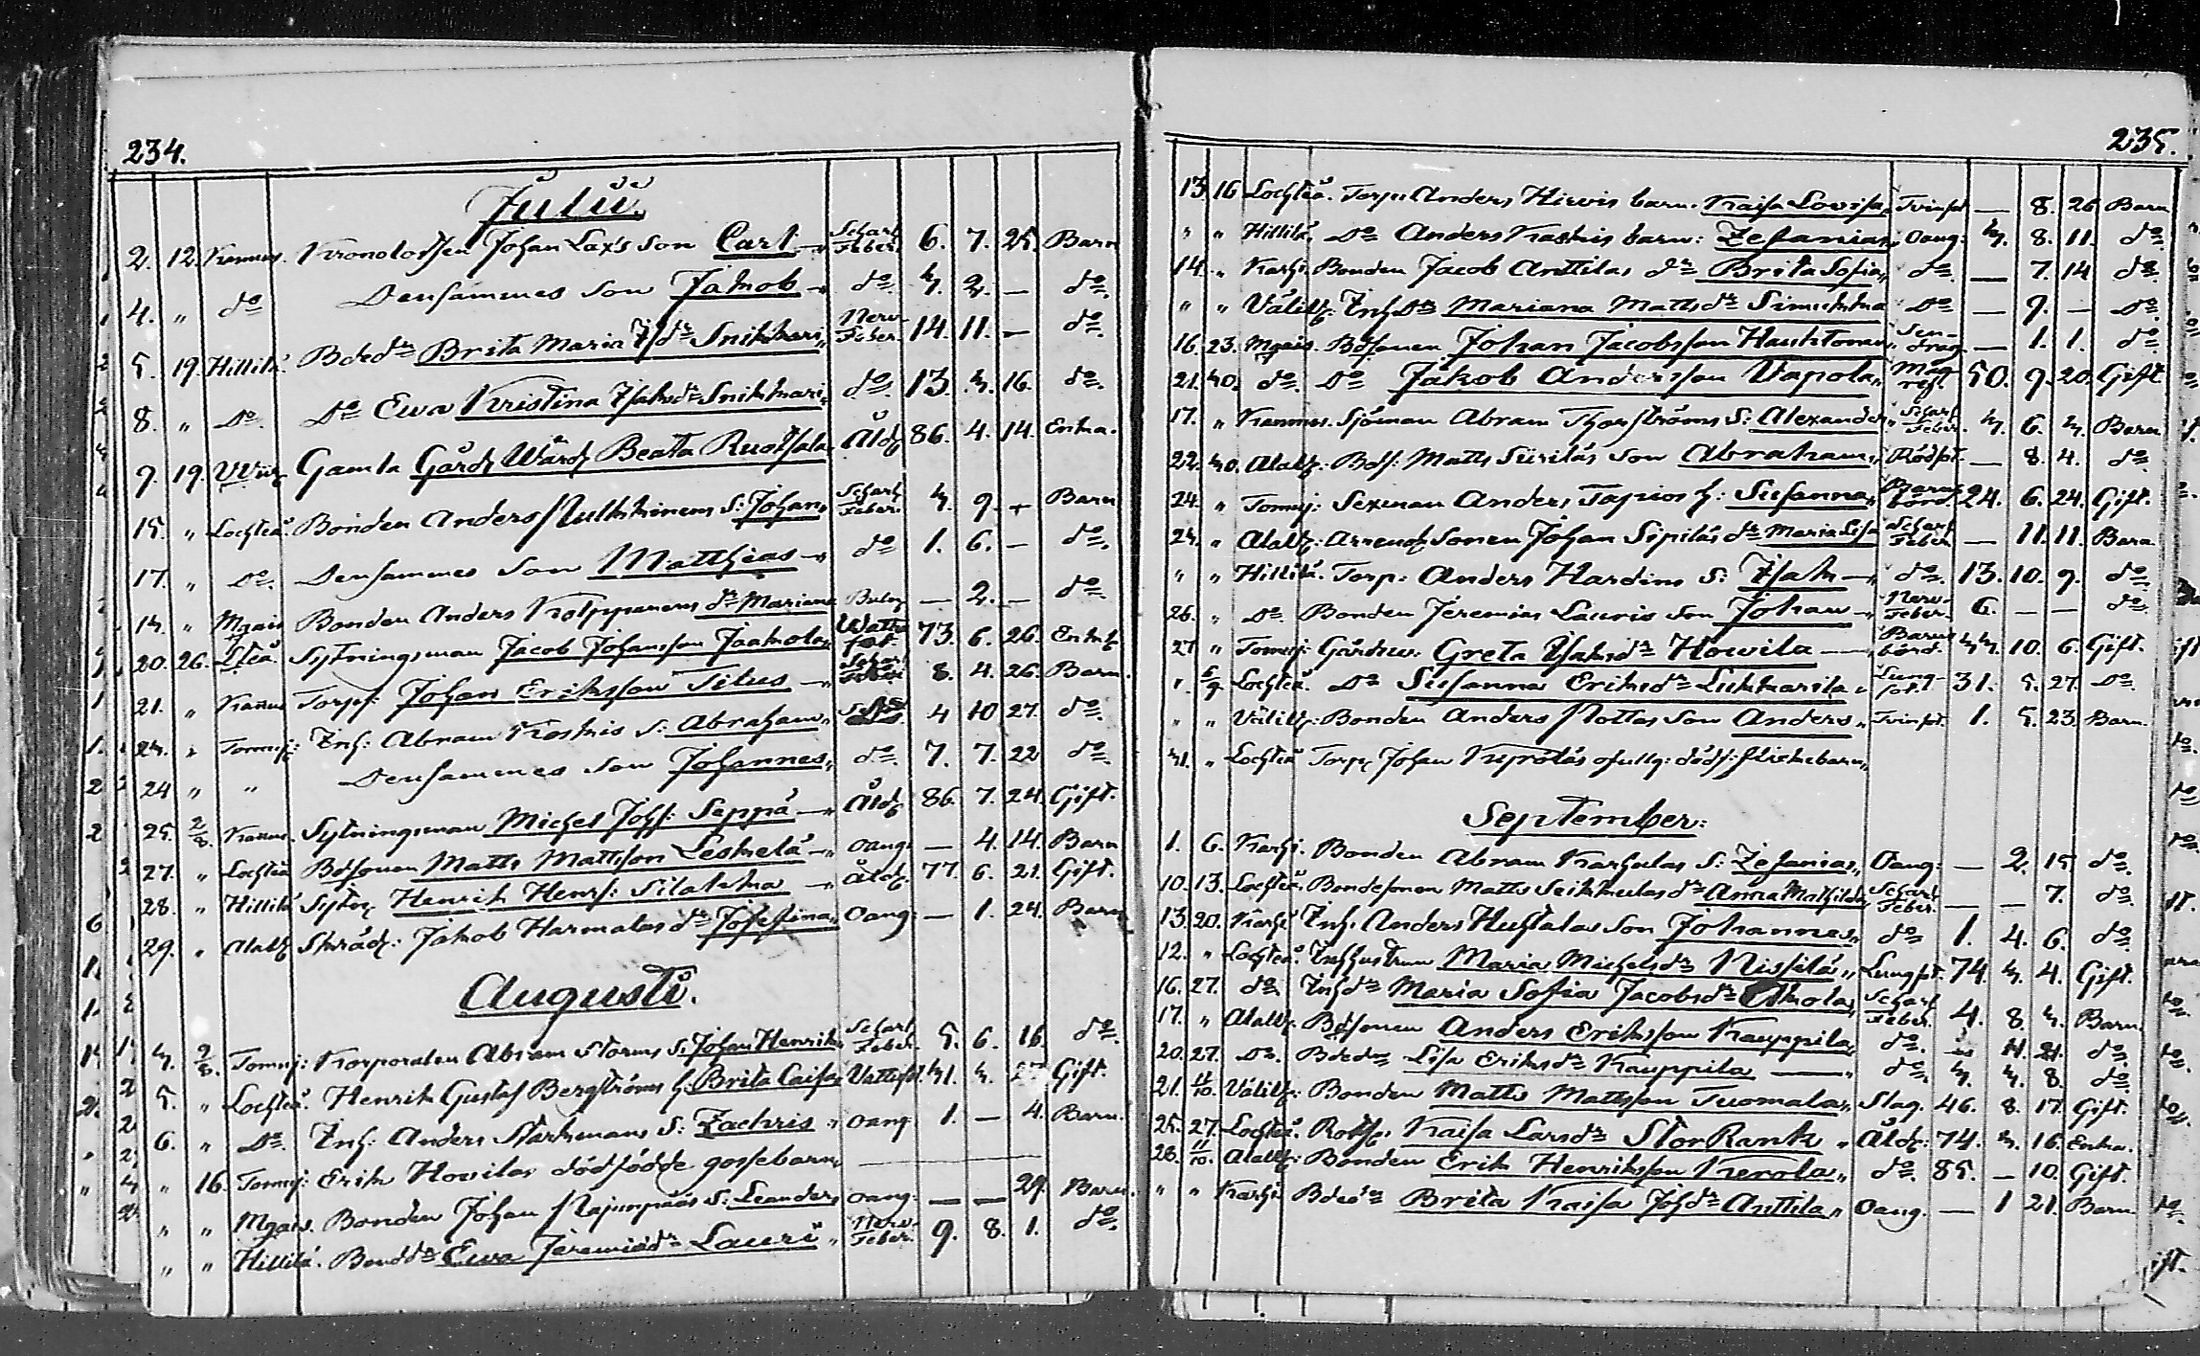 234.
Julii.
2. 12. Kannus. Kronolotsen Johan Lax's son Carl Scharl. Feber. 6. 7. 25. Barn
4. " do Densammes son Jakob do. 4. 2. — do.
5. 19. Hillilä. Bdedr Brita Maria Isdr Snikkari Nerv- Feber. 14. 11. — do.
8. " Do. Do Ewa Kristina Isaksdr Snikkari do. 13. 4. 16. do.
9. 19. Gamla Gårds Wärd Beata Ruotsala Åld. 86. 4. 14. Enka.
15. " Lochteå. Bonden Anders S: Johan Scharl Feber. 4. 9. + Barn
17. " Do. Densammes son Matthias do 1. 6. — do.
14. " Mgais Bonden Anders Kolpparens dr Mariana — 2. — do.
20. 26. Lteå. Sytningsman Jacob Johansson Jaakola Watts- sot. 73. 6. 26. Enkl.
21. " Kannus Torp. Johan Eriksson Titus 8. 4. 26. Barn.
24. " Tomuj: Inh: Abram Koskis S: Abraham 4 10 27. do.
24 " " Densammes son Johannes do. 7. 7. 22 do.
25. 2/8. Kannus. Sytningsman Michel Johs: Seppä Åld 86. 7. 24. Gift.
27. " Lochteå Bdsonen Matts Mattsson Leskelä Oang. — 4. 14. Barn
28. " Hillilä Sytn. Henrik Henrs: Silakka Åld. 77. 6. 21. Gift.
29. " Alav. Skrädd: Jakob Harmalas dr Josefina Oang. — 1. 24. Barn
Augusti.
4. 9/8. Tomuj: Korporalen Abram Storms S: Johan Henrik Scharl Feber. 5. 6. 16. do.
5. " Lochteå. Henrik Gustaf Bergströms h: Brita Caisa Vattusot. 41. 4. 27. Gift.
6. " Do. Inh: Anders Starkmans S: Zachris " Oang. 1. — 4. Barn.
4. " 16. Tomuj: Erik Howilas dödfödde gossebarn
" " Mgais. Bonden Johan S: Leander Oang. — — 29. Barn.
" " Hillilä. Bonddr Ewa Jeremiædr Lauri " Nerv- Feber. 9. 8. 1. do.
235.
13. 16 Lochteå. Torp. Anders Hirvis barn. Kaisa Lovisa Tvinsot — 8. 26 Barn
" " Hillilä. Do Anders Koskis barn: Zefanias Oang. 4. 8. 11. do.
14. " Karhi. Bonden Jacob Anttilas dr Brita Sofia do. — 7. 14 do.
" " Välik. Inh. Dr Mariana Mattsdr Simukka Do — 9. — Do.
16. 23. Mgais. Bdsonen Johan Jacobsson Hauktonen — 1. 1. do.
21. 30. do. Do Jakob Andersson Vapola Mag- ref. 50. 9. 20. Gift.
17. " Kannus. Sjöman Abram Thorströms S: Alexander Scharl. Feber. 4. 6. 4. Barn
22. 30. Alav: Bds: Matts Siiriläs son Abraham Rödsot. — 8. 4. do.
24. " Tomuj: Sexman Anders Tapios h: Susanna Barns- börd. 24. 6. 24. Gift.
24. " Alav: Arrend. Sonen Johan Sipiläs dr Maria Lisa Scharl. Feber — 11. 11. Barn
" " Hillilä. Torp: Anders Hardins S: Isak do. 13. 10. 9. do.
26. " Do Bonden Jeremias Lauris son Johan Nerv- Feber. 6. — — do.
27 " Tomuj: Gårdsv. Greta Isaksdr Howila Barns- börd. 44. 10. 6. Gift.
1. 6/9. Lochteå. Do Susanna Eriksdr Lukkarila Lung- sot. 31. 5. 27. Do
" " Välik: Bonden Anders son Anders Tvinsot. 1. 5. 23. Barn.
31. " Lochteå Torp. Johan ofullg: dödf: flickebarn
September.
1. 6. Karhi. Bonden Abram Karhulas S: Zefanias Oang: — 2. 15 do.
10. 13. Lochteå. Bondesonen Matts Seikkulas dr Anna Mathilda Scharl. Feber. — — 7. do.
13. 20. Karhi Inh. Anders Huhtalas son Johannes do 1. 4. 6. do.
12. " Lochteå. Inh.hustrun Maria Michelsdr Nissilä " Lungsot. 74. 4. 4. Gift.
16. 27. do Inh dr Maria Sofia Jacobsdr Scharl. Feber. 4. 8. 4. Barn.
17. " Alav. Bdsonen Anders Eriksson Kauppila do. 11. 21. do.
20. 27. Do. Bdedr Lisa Eriksdr Kauppila do. 4. 4. 8. do
21. 11/10. Välik: Bonden Matts Mattsson Tuomala Slag. 46. 8. 17. Gift.
25. 27. Lochteå. Rotf. Kaisa Larsdr StorRank " Åld: 74. 4. 16. Enka.
28. 11/10. Alav: Bonden Erik Henriksson Kerola do. 85. — 10. Gift.
" " Karhi Bdedr Brita Kaisa Johdr Anttila Oang. — 1 21. Barn